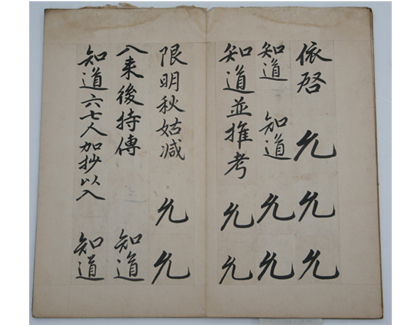 依啓 允 允 允
知道 知道 允 允
知道並推考 允 允
限明秋姑减 允 允
入来後持傳 知道
知道六七人加抄以入 知道